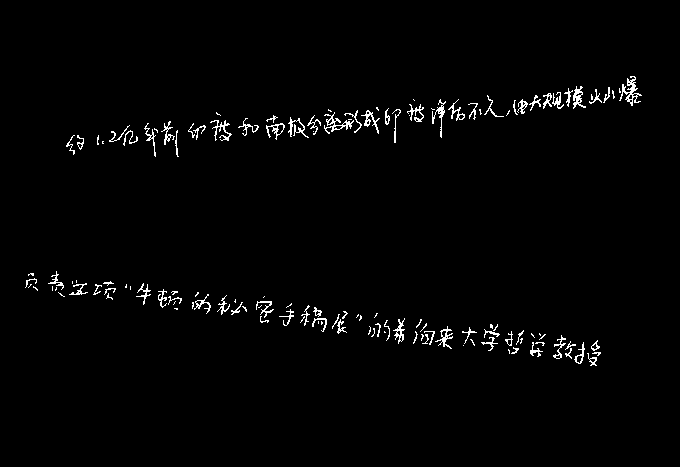 约1.2亿年前印度和南极分离形成印度洋后不久,由大规模火山爆
负责这项“牛顿的秘密手稿展”的希伯来大学哲学教授